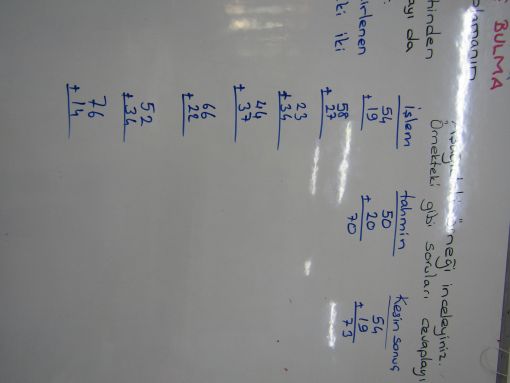 BULMA
lamanın
hinden
ayı da
irlenen
ki iki
örneği inceleyiniz.
Örnekteki gibi soruları cevaplayı
işlem tahmin Kesin sonuç
54 50 54
+ 19 + 20 + 19
70 73
58
+ 27
23
+ 34
44
+ 37
66
+ 22
52
+ 34
76
+ 14